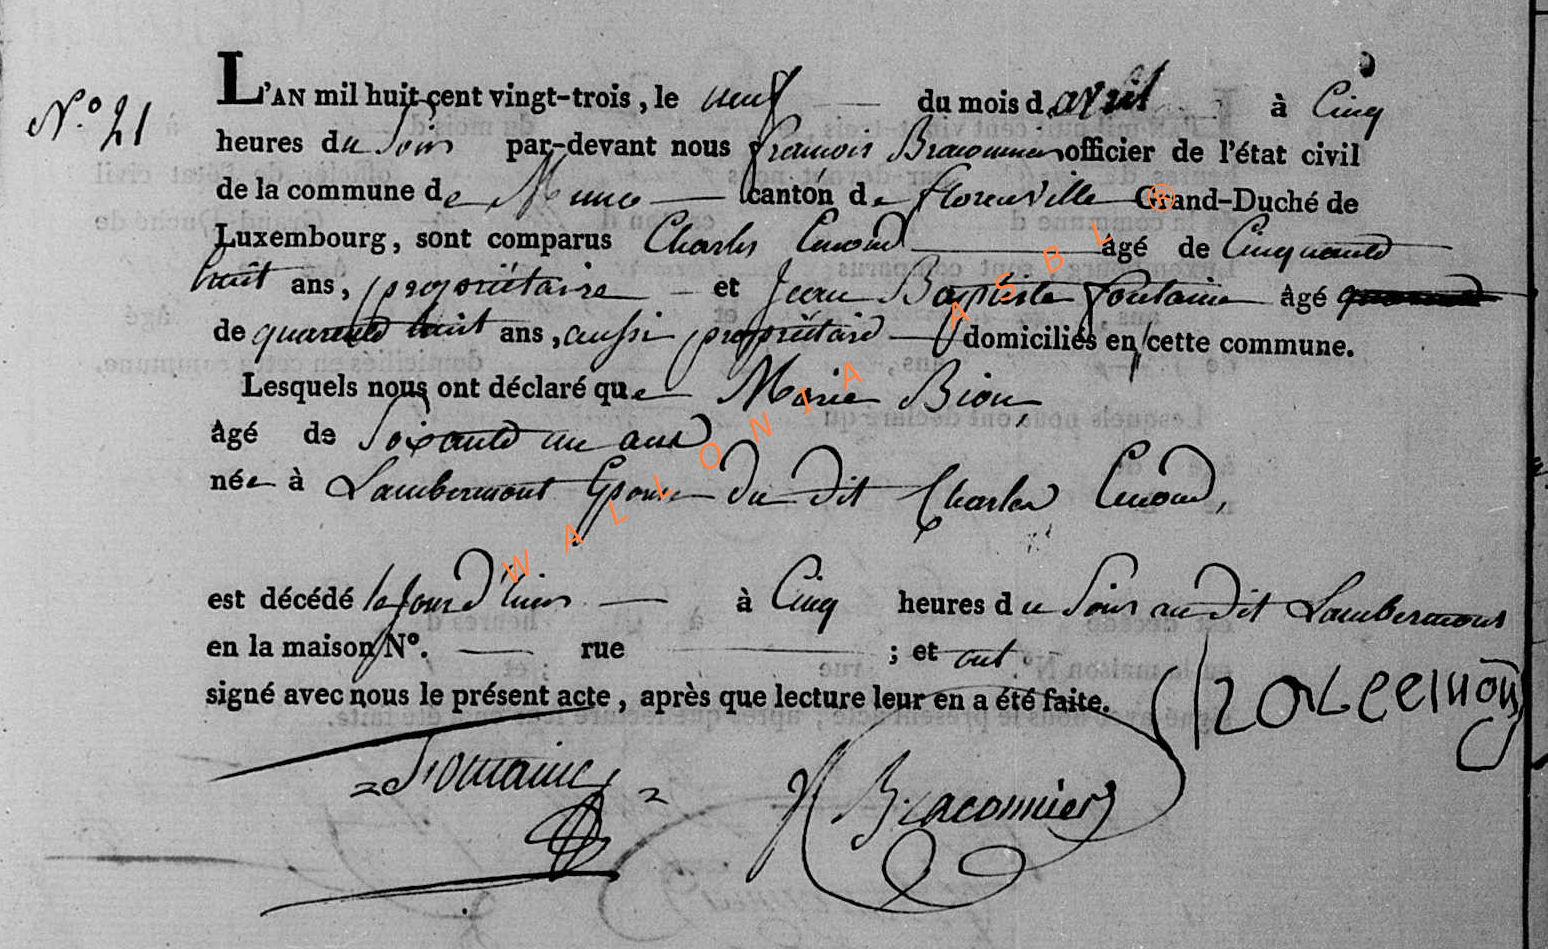 N.° 21
L'AN mil huit cent vingt-trois, le neuf du mois d avril à Cinq
heures du Soir par-devant nous françois Braconnier officier de l'état civil
de la commune de Muno canton de florenville Grand-Duché de
Luxembourg, sont comparus Charles Emond âgé de Cinquante
huit ans, propriétaire et Jean Baptiste fontaine âgé
de quarante huit ans, aussi propriétaire domiciliés en cette commune.
Lesquels nous ont déclaré que Marie Bion
âgé de Soixante un ans
née à Lambermont Epouse du dit Charles Emond,
est décédé le Jour d'hier à Cinq heures du Soir au dit Lambermont
en la maison N°. rue ; et ont
signé avec nous le présent acte, après que lecture leur en a été faite.
fontaine
f Braconnier
WALLONIA ASBL